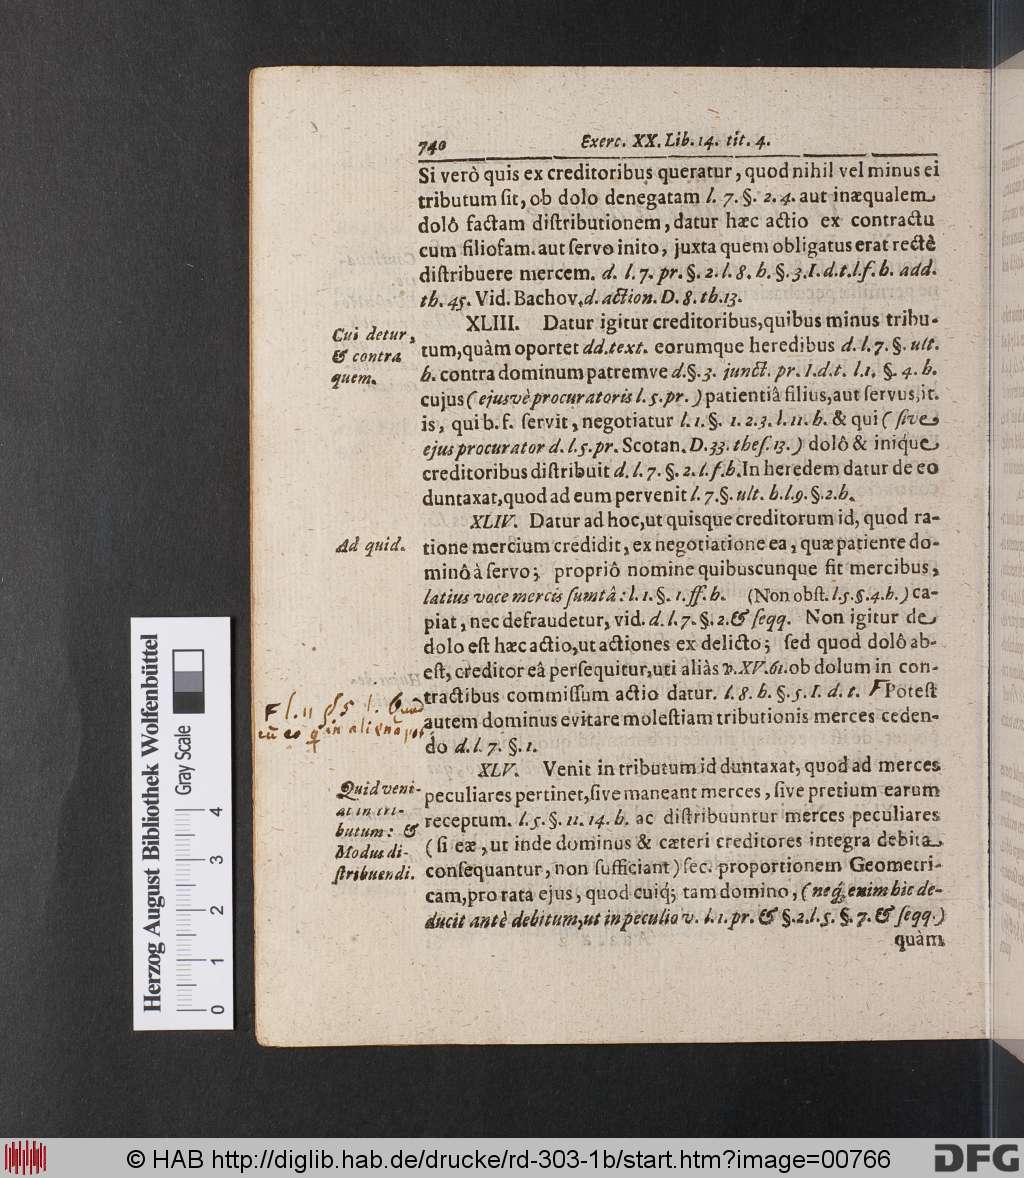 740 Exerc. XX. Lib. 14. tit. 4.
Si verò quis ex creditoribus queratur, quod nihil vel minus ei
tributum ſit, ob dolo denegatam l. 7. §. 2. 4. aut inæqualem
dolô factam diſtributionem, datur hæc actio ex contractu
cum filiofam. aut ſervo inito, juxta quem obligatus erat rectè
diſtribuere mercem. d. l. 7. pr. §. 2. l. 8. h. §. 3. I. d. t. l. f. h. add.
th. 45. Vid. Bachov. d. action. D. 8. th. 13.
Cui detur,
& contra
quem.
XLIII. Datur igitur creditoribus, quibus minus tribu-
tum, quàm oportet dd. text. eorumque heredibus d. l. 7. §. ult.
h. contra dominum patremve d. §. 3. junct. pr. I. d. t. l. 1. §. 4. h.
cujus (ejusvè procuratoris l. 5. pr.) patientiâ filius, aut ſervus, it.
is, qui b. f. ſervit, negotiatur l. 1. §. 1. 2. 3. l. 11. h. & qui (ſive
ejus procurator d. l. 5. pr. Scotan. D. 33. theſ. 13.) dolô & iniquè
creditoribus diſtribuit d. l. 7. §. 2. l. f. h. In heredem datur de eo
duntaxat, quod ad eum pervenit l. 7. §. ult. h. l. 9. §. 2. h.
Ad quid.
XLIV. Datur ad hoc, ut quisque creditorum id, quod ra-
tione mercium credidit, ex negotiatione ea, quæ patiente do-
minô à ſervo; propriô nomine quibuscunque fit mercibus,
latius voce mercis ſumtâ: l. 1. §. 1. ff. h. (Non obſt. l. 5. §. 4. h.) ca-
piat, nec defraudetur, vid. d. l. 7. §. 2. & ſeqq. Non igitur de
dolo eſt hæc actio, ut actiones ex delicto; ſed quod dolô ab-
eſt, creditor eâ perſequitur, uti aliàs v. XV. 61. ob dolum in con-
tractibus commiſſum actio datur. l. 8. h. §. 5. I. d. t. F Poteſt
autem dominus evitare moleſtiam tributionis merces ceden-
do d. l. 7. §. 1.
F l. 11 § 5
in aliena
Quid veni-
at in tri-
butum: &
Modus di-
ſtribuendi.
XLV. Venit in tributum id duntaxat, quod ad merces
peculiares pertinet, ſive maneant merces, ſive pretium earum
receptum. l. 5. §. 11. 14. h. ac diſtribuuntur merces peculiares
(ſi eæ, ut inde dominus & cæteri creditores integra debita
conſequantur, non ſufficiant) ſec. proportionem Geometri-
cam, pro rata ejus, quod cuiq; tam domino, (neq; enim hic de-
ducit antè debitum, ut in peculio v. l. 1. pr. & §. 2. l. 5. §. 7. & ſeqq.)
quàm
Herzog August Bibliothek Wolfenbüttel
Gray Scale
0 1 2 3 4
© HAB http://diglib.hab.de/drucke/rd-303-1b/start.htm?image=00766
DFG